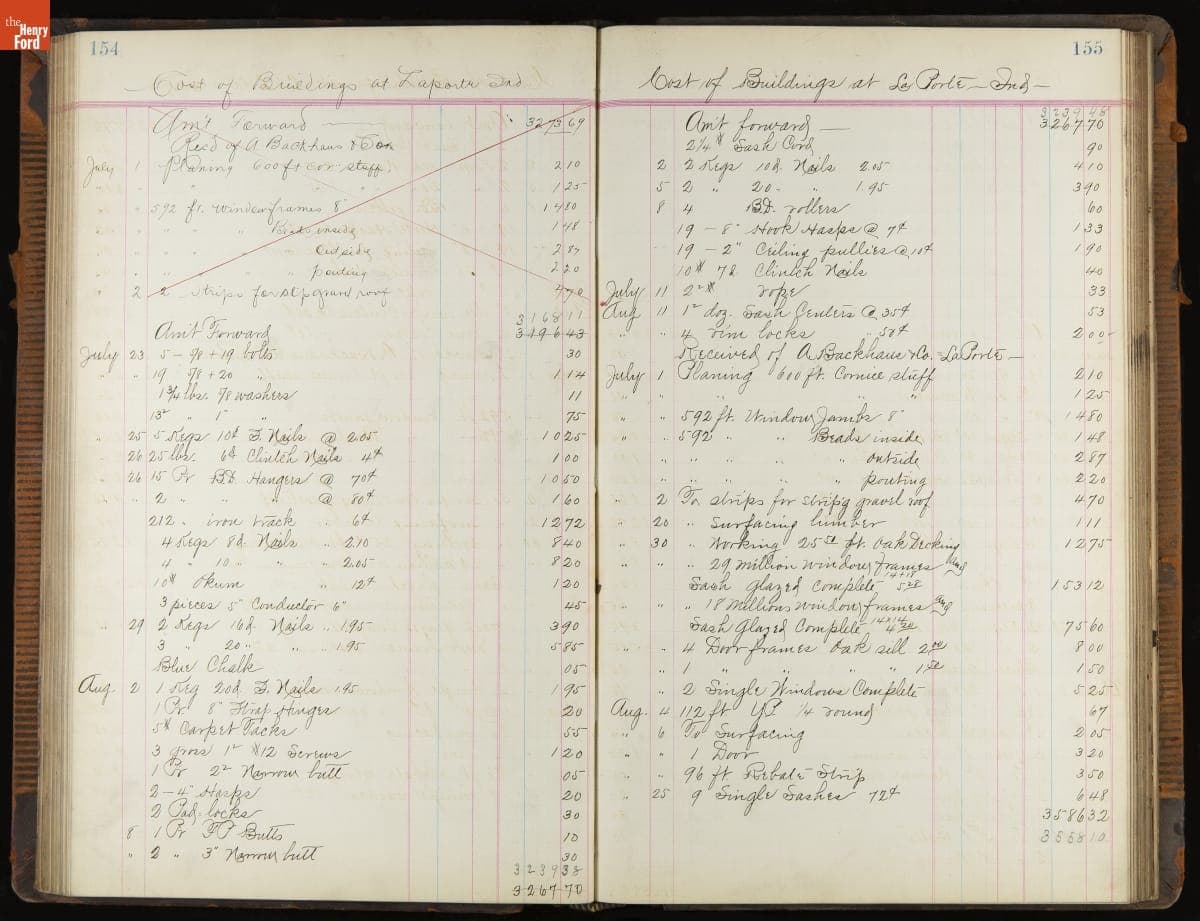 the Henry Ford
154
Cost of Buildings at Laporte Ind
Am't Forward 3273 69
Rec'd of A Backhaus & Son
July 1 Planing 600 ft cor. stuff. 2 10
" " " " 1 25
" " 592 ft. window frames 8" 14 80
" " " " Beads inside 1 48
" " " " outside 2 87
" " " " pouting 2 20
" 2 2 strips for st'p gravel roof 4 70
3168 11
Am't Forward 3196 43
July 23 5 - 9/8 + 19 bolts 30
" " 19 9/8 + 20 " 1 14
1 3/4 lbs. 7/8 washers 11
13" " 1" " 75
" 25 5 Kegs 10d F. Nails @ 2.05 10 25
" 26 25 lbs. 6d Clinch Nails 4¢ 1 00
" 26 15 Pr B.D. Hangers @ 70¢ 10 50
" " 2 " " " @ 80¢ 1 60
212 " iron track " 6¢ 12 72
4 Kegs 8d. Nails " 2.10 8 40
4 " 10 " " " 2.05 8 20
10# Okum " 12¢ 1 20
3 pieces 5" Conductor 6" 45
" 29 2 Kegs 16d. Nails " 1.95 3 90
3 " 20 " " " 1.95 5 85
Blue Chalk 05
Aug. 2 1 Keg 20d F. Nails 1.95 1 95
1 Pr 8" Strap Hinges 20
5# Carpet Tacks 55
3 gross 1" #12 Screws 1 20
1 Pr 2" Narrow butt 05
2 - 4" Hasps 20
2 Pad-locks 30
8 1 Pr Butts 10
" 2 " 3" Narrow butt 30
3239 38
3267 70
155
Cost of Buildings at La Porte - Ind -
3239 48
Am't forward - 3267 70
2 1/4 # Sash Cord 90
2 2 Kegs 10d. Nails 2.05 4 10
5 2 " 20 " " 1.95 3 90
8 4 B.D. rollers 60
19 - 8" Hook Hasps @ 7¢ 1 33
19 - 2" Ceiling pullies @ 10¢ 1 90
10# 7d. Clinch Nails 40
July 11 2 2# rope 33
Aug 11 1 1/2 doz. Sash Centers @ 35¢ 53
" " 4 rim locks " 50¢ 2 00
Received of A Backhaus & Co. La Porte -
July 1 Planing 600 ft. Cornice stuff 2 10
" " " " " 1 25
" " 592 ft. Window Jambs 8" 14 80
" " 592 " " Beads inside 1 48
" " " " " outside 2 87
" " " " " pouting 2 20
" 2 To strips for strip'g gravel roof 4 70
" 20 " Surfacing lumber 1 11
" 30 " Working 25 ft. Oak Decking 12 75
" " " 29 million window frames and
Sash Glazed Complete 14 x 18 5 28 153 12
" " " 18 Millions window frames and
Sash Glazed Complete 14x14 4 20 75 60
" " " 4 Door frames Oak sill 2 00 8 00
" " " 1 " " " " 1 50 1 50
" 2 Single Windows Complete 5 25
Aug. 4 112 ft YP 1/4 round 67
" 6 To Surfacing 2 05
" " " 1 Door 3 20
" " 96 ft Rebate Strip 3 50
" 25 9 Single Sashes 72¢ 6 48
3586 32
3558 10